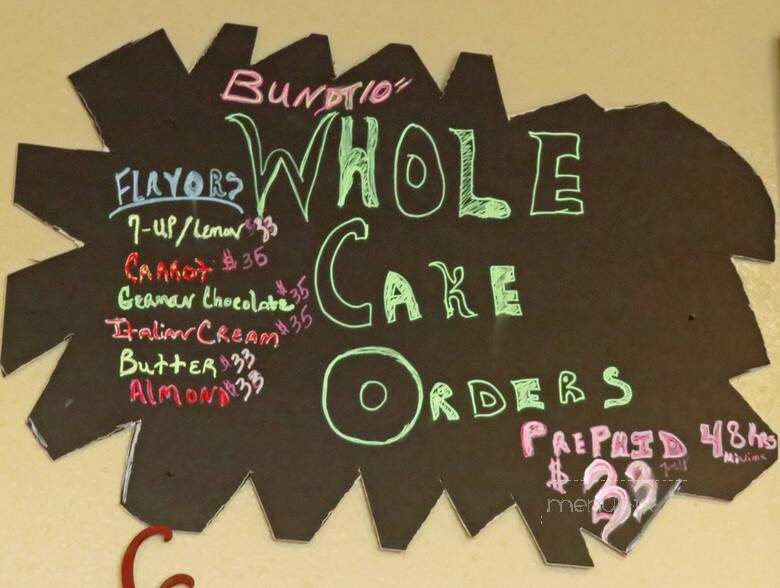 BUNDT 10"
WHOLE
CAKE
ORDERS
FLAVORS
7-UP/Lemon $33
CARROT $35
GERMAN CHOCOLATE $35
ITALIAN CREAM $35
BUTTER $33
ALMOND $33
PREPAID 48 hrs
$33
menupix